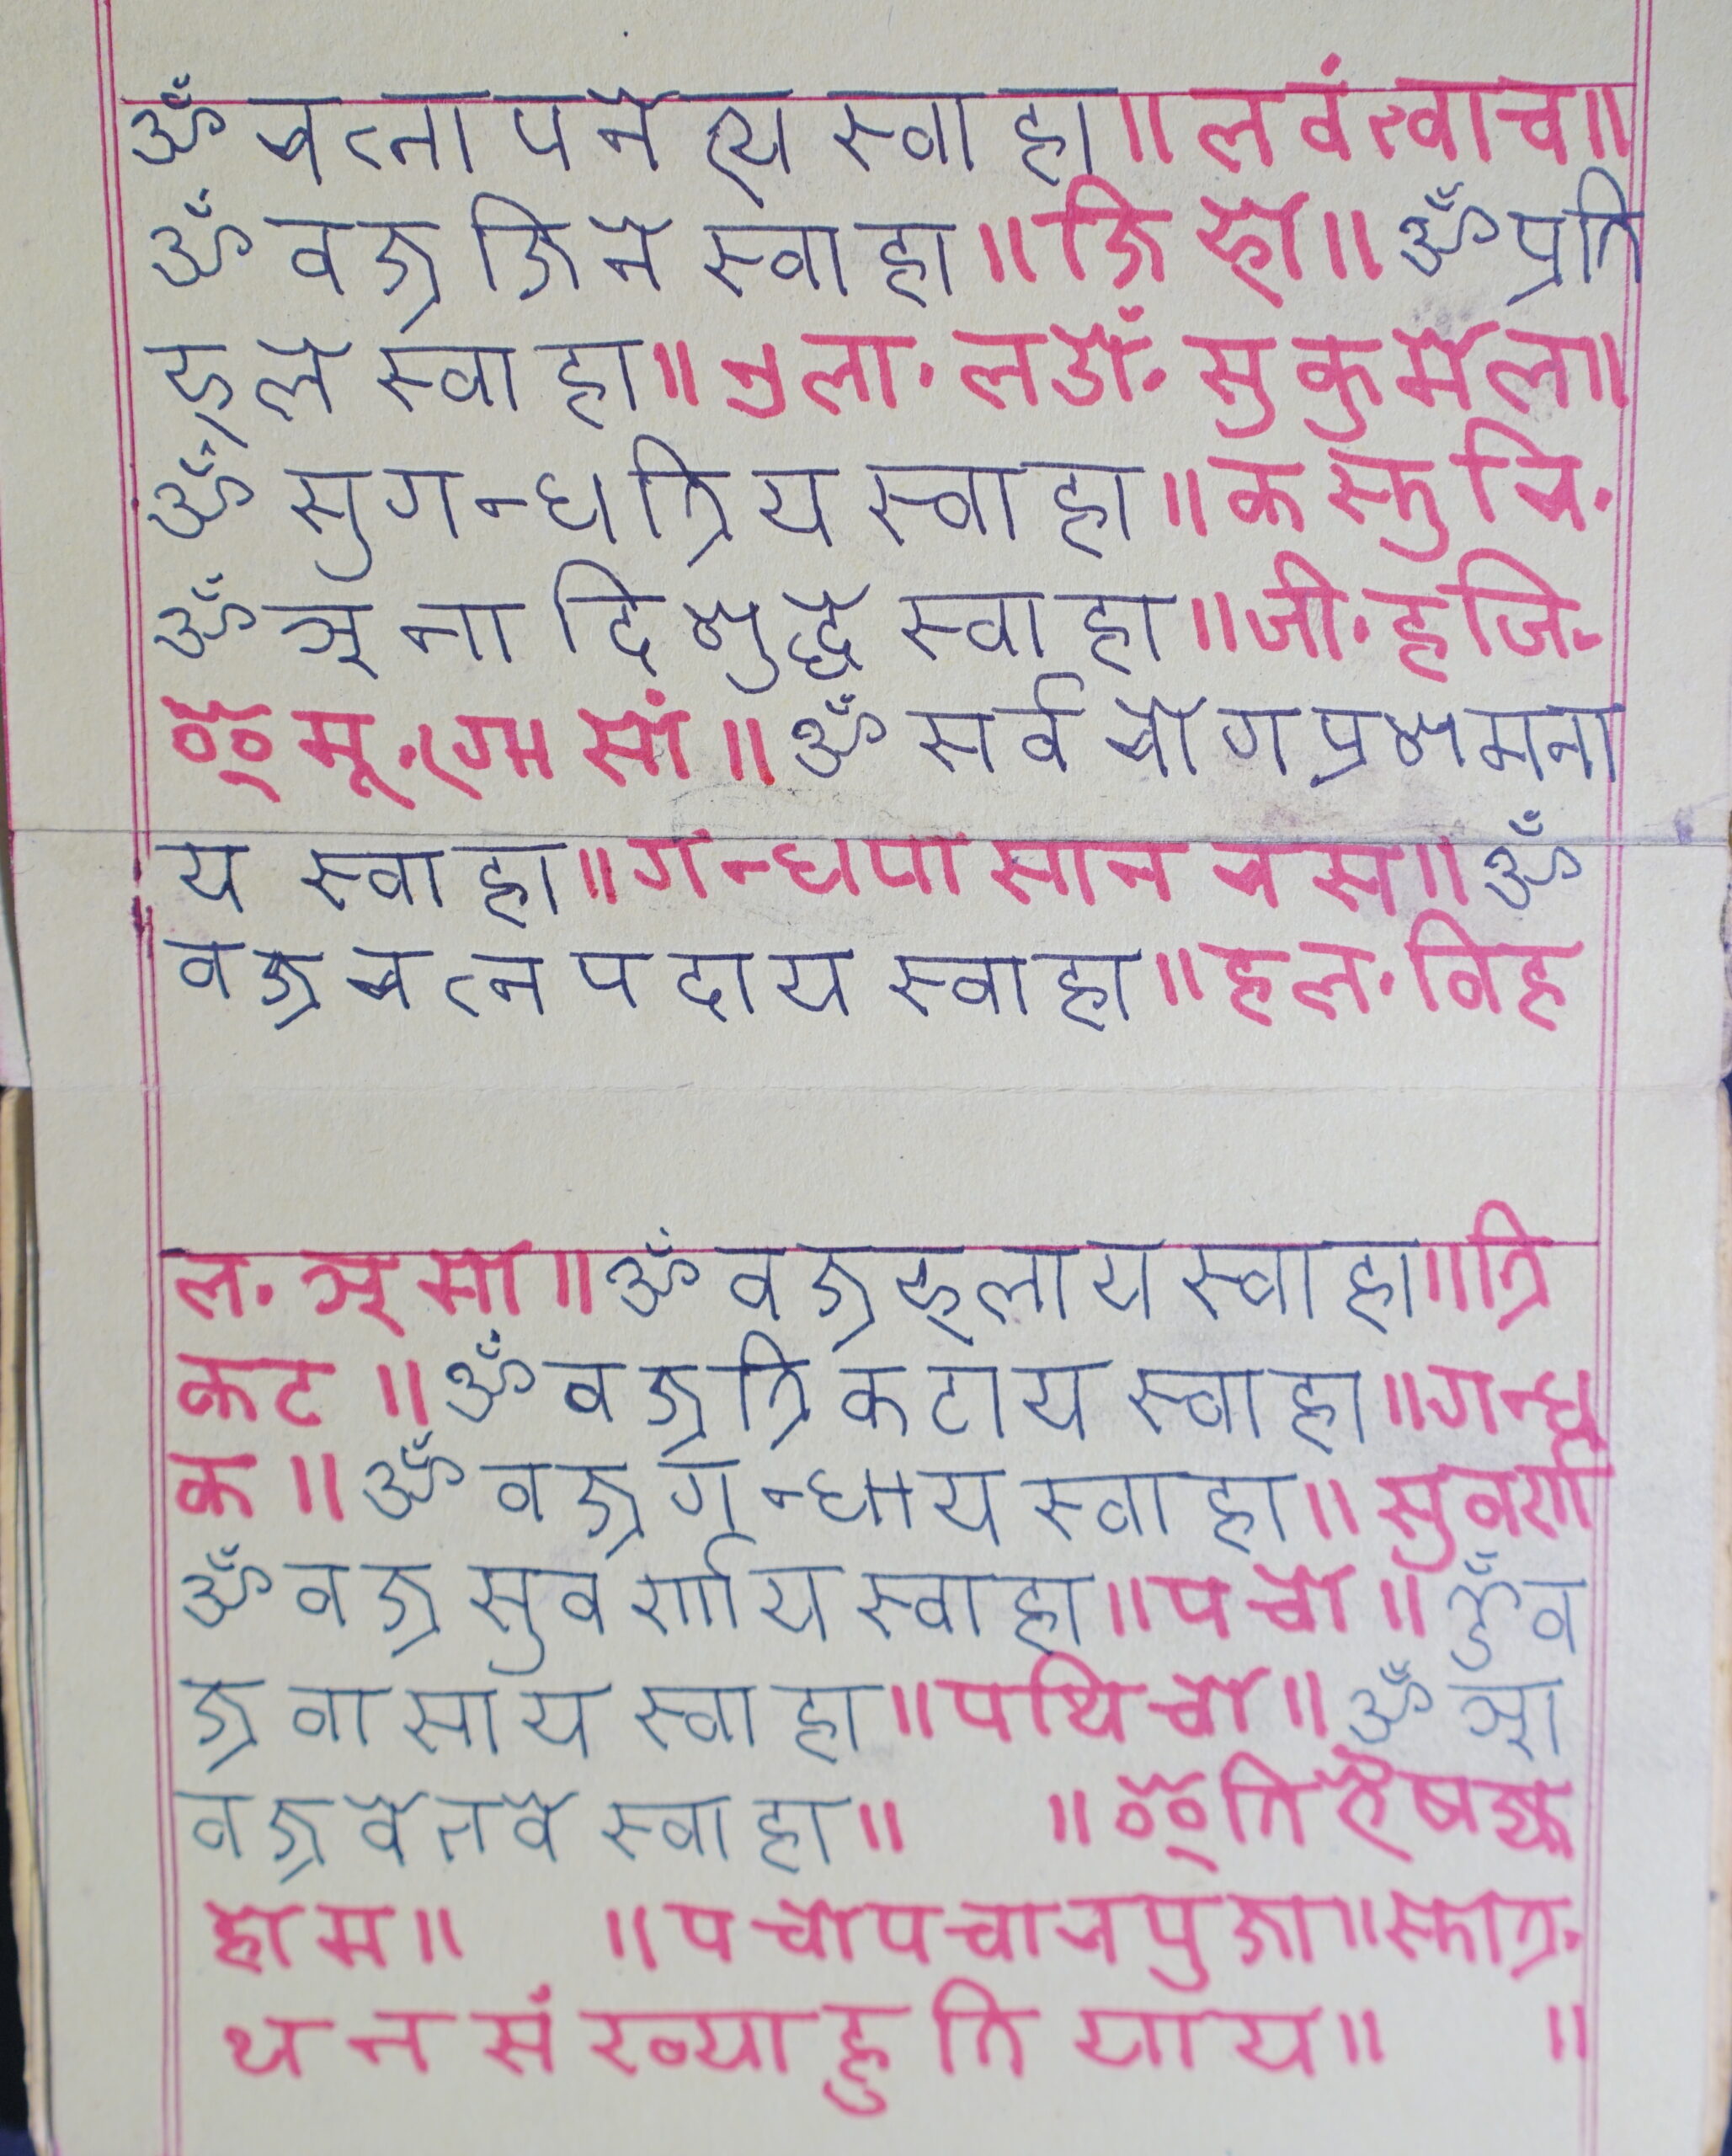 ॐ रत्ना पनेत्य स्वाहा॥ लवंत्वाच॥
ॐ वज्र जिने स्वाहा॥ जि फो॥ ॐ प्रति
फले स्वाहा॥ एला. लङों. सुकुर्मेल॥
ॐ सुगन्धत्रिय स्वाहा॥ कस्तुरि.
ॐ अनादिशुद्धे स्वाहा॥ जी. हजि.
इमू. सों॥ ॐ सर्व रोग प्रशमना
य स्वाहा॥ गन्धपासान रस॥ ॐ
वज्र रत्न पदाय स्वाहा॥ हल. विह
ल. अमो॥ ॐ वज्र फलाय स्वाहा॥ त्रि
कट॥ ॐ वज्र त्रिकटाय स्वाहा॥ गन्ध
क॥ ॐ वज्र गन्धाय स्वाहा॥ सुवर्ण
ॐ वज्र सुवर्णाय स्वाहा॥ पचो॥ ॐ व
ज्र वासाय स्वाहा॥ पथि चो॥ ॐ आ
वज्र वेतवे स्वाहा॥ ॥ इति भैषज्य
होम॥ ॥ पचोपचारपुजा॥ स्तोत्र.
थन संख्याहुति याय॥ ॥